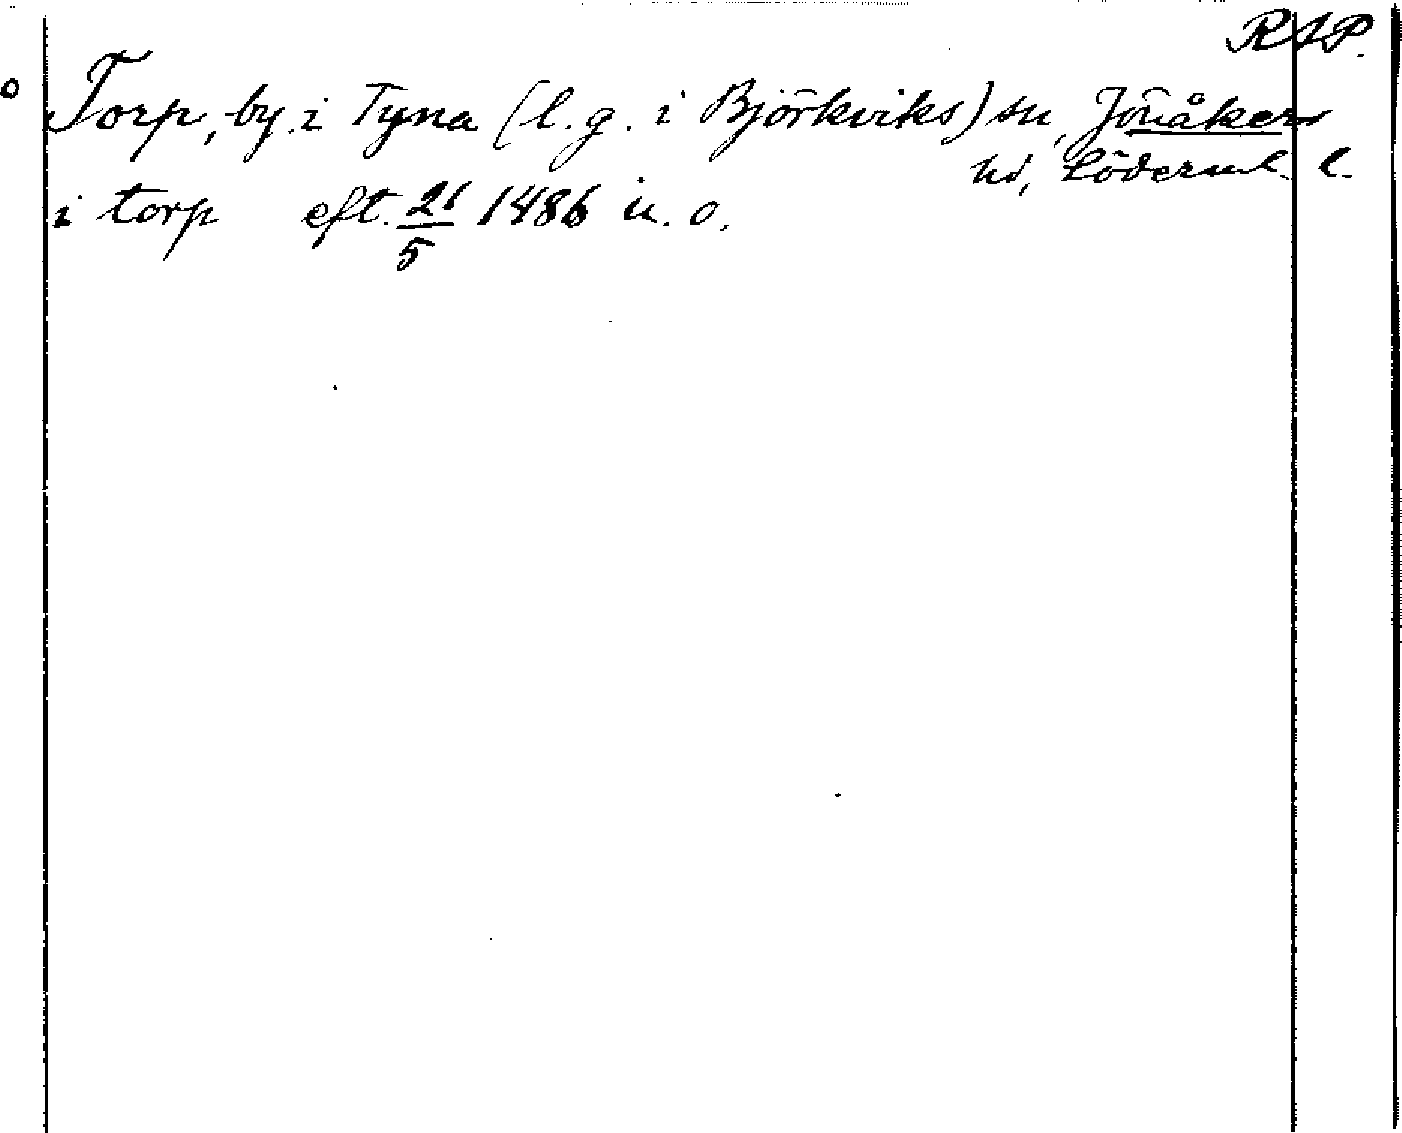 RAP.
Torp, by i Tyna (l. g. i Björkviks) sn, Jönåkers
hd, Söderml. l.
i torp eft. 21/5 1486 u. o.